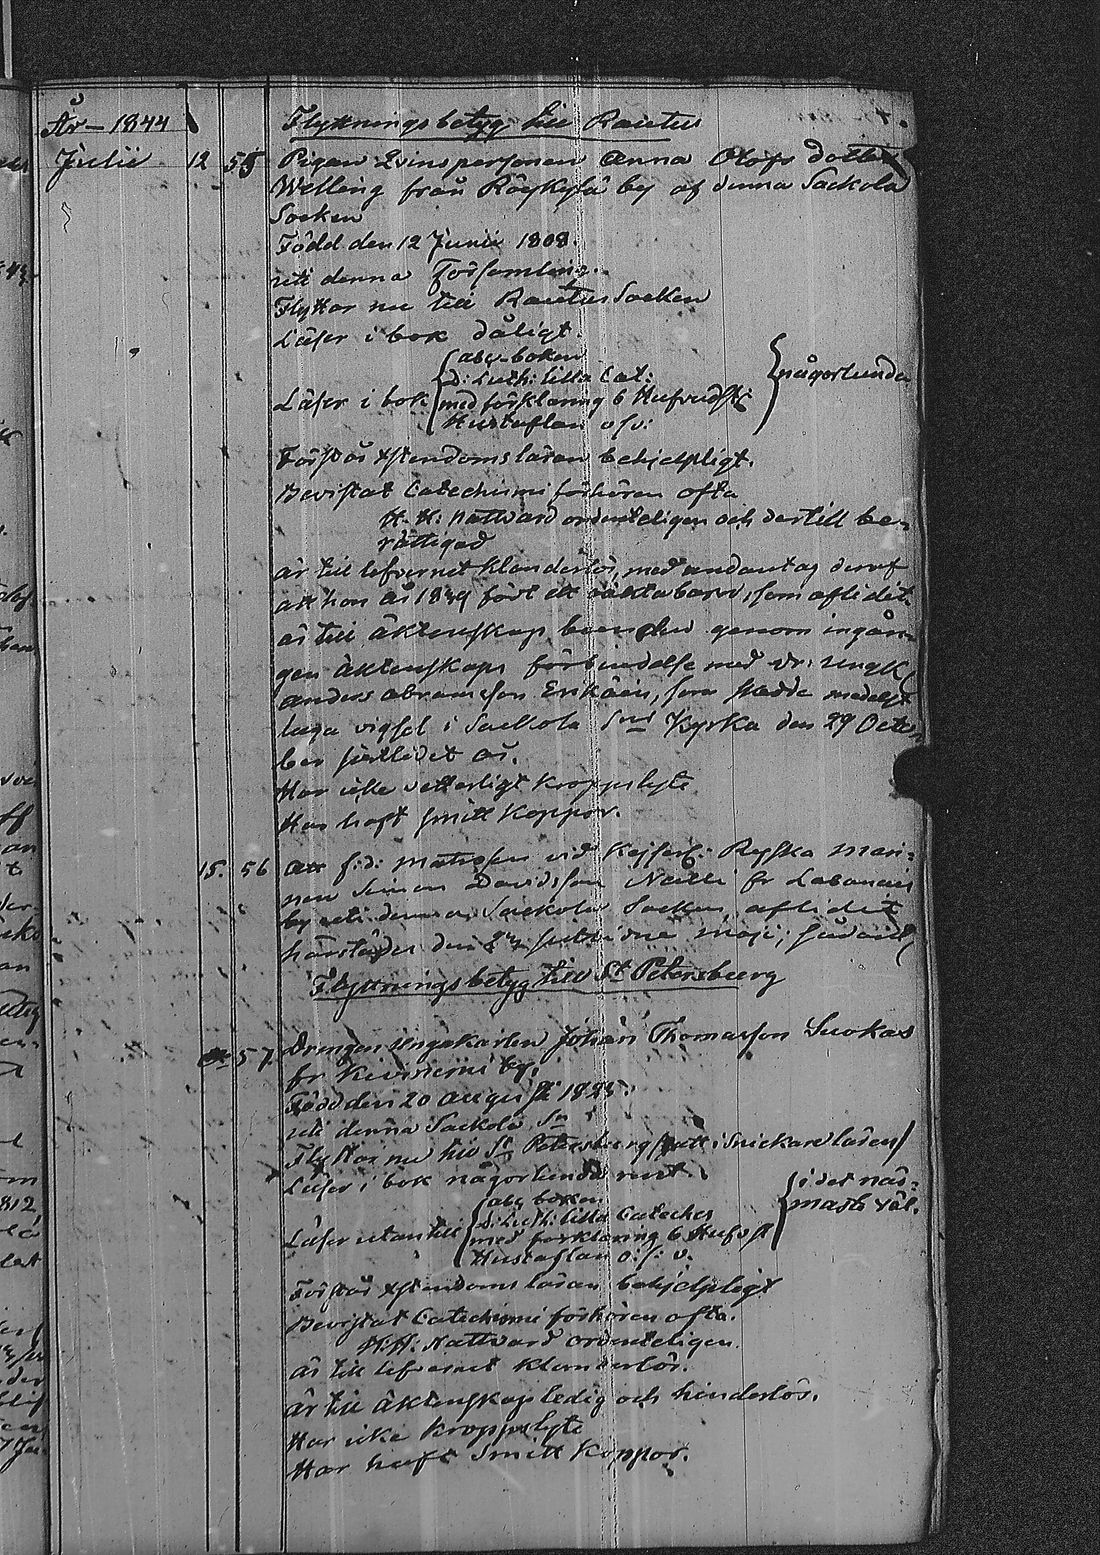 År – 1844
Flyttningsbetyg till Rautus
Julii 12 55 Pigan Qvinspersonen Anna Olofs dotter
Welling från Röykylä by af denna Sackola
Socken
Född den 12 Junii 1808.
uti denna Församling.
Flyttar nu till Rautus Socken
Läser i bok dåligt.
Läser i bok { abc-boken
D: Luth: lilla Cat:
med förklaring 6 Hufvudst:
Hustaflan o s v: } någorlunda
Förstår Xstendomsläran behjelpligt.
Bevistat Catechismi förhören ofta
H. H. Nattvard ordenteligen och dertill be-
rättigad
är till lefvernet klanderlös, med undantag deraf
att hon år 1839 födt ett oäkta barn, som aflidit.
är till äktenskap bunden genom ingån-
gen äktenskaps förbindelse med Dr: ungk
Anders Abramsson Erikäin, som skedde medelst
laga vigsel i Sackola Sns Kyrka den 29 Octo-
ber förlidet år.
Har icke vetterligt kroppslyte
Har haft Smitt Koppor.
15. 56 Att f: d: Matrosen vid Kejserl: Ryska Mari-
nen Simon Davidsson Nalli fr Labanais
by uti denna Sackola Socken aflidit
härstädes den
Flyttningsbetyg till St Petersburg
57 Drängen Ungakarlen Johan Thomasson Suokas
fr Kiviniemi by.
Född den 20 Augusti 1825.
uti denna Sackola Sn
Flyttar nu till St Petersburg satt i Snickare läran
Läser i bok någorlunda rent.
Läser utantill { abc boken
D: Luth: lilla Cateches
med förklaring 6 Hufvst
Hustaflan o: s: v. } i det när-
maste väl.
Förstår Xstendoms läran behjelpligt
Bevistat Catechismi förhören ofta.
H. H. Nattvard ordenteligen.
är till lefvernet klanderlös.
är till äktenskap ledig och hinderlös.
Har icke kroppslyte
Har haft Smitt Koppor.